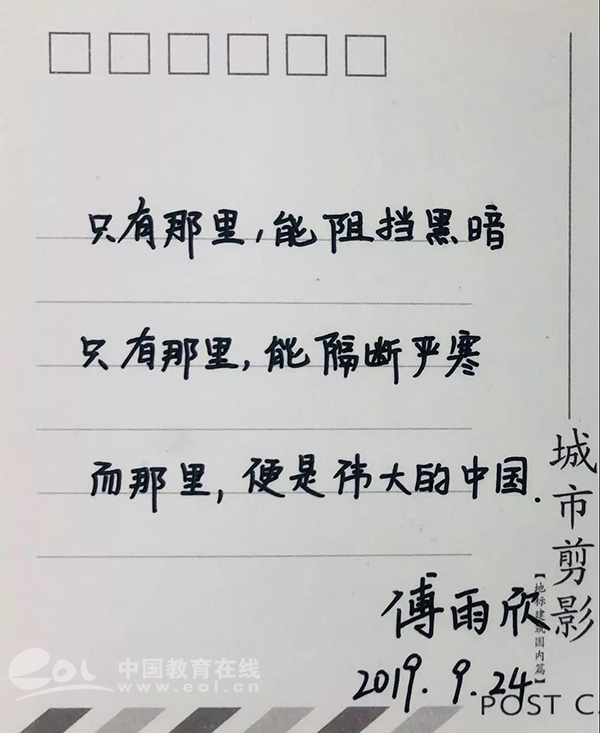 只有那里，能阻挡黑暗
只有那里，能隔断严寒
而那里，便是伟大的中国.
傅雨欣
2019.9.24
城市剪影
【地标建筑国内篇】
POST CA
eol 中国教育在线
www.eol.cn